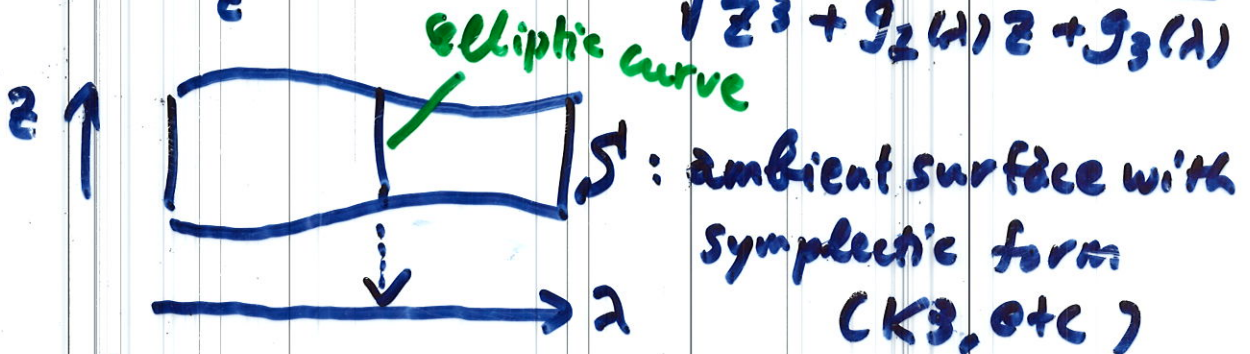 √z³ + g₂(λ)z + g₃(λ)
elliptic curve
z
S : ambient surface with
symplectic form
(K3, etc)
λ